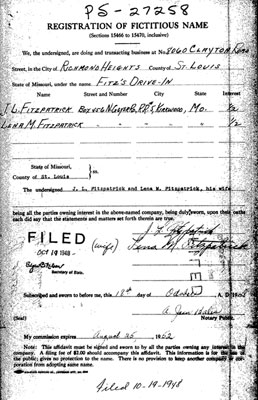 PS-27258
REGISTRATION OF FICTITIOUS NAME
(Sections 15466 to 15470, inclusive)
We, the undersigned, are doing and transacting business at No. 8060 CLAYTON ROAD
Street, in the City of RICHMOND HEIGHTS County of ST. LOUIS
State of Missouri, under the name FITZ'S DRIVE-IN
Name Street and Number City State Interest
J. L. FITZPATRICK KIRKWOOD, MO. 1/2
LENA M. FITZPATRICK " " " 1/2
State of Missouri,
County of St. Louis } ss.
The undersigned J. L. Fitzpatrick and Lena M. Fitzpatrick, his wife
being all the parties owning interest in the above-named company, being duly sworn, upon their oaths
each did say that the statements and matters set forth therein are true.
J. L. Fitzpatrick
(wife) Lena M. Fitzpatrick
FILED
OCT 19 1948
Secretary of State.
Subscribed and sworn to before me, this 18th day of October A. D. 19
(Seal) Notary Public.
My commission expires August 25 1952
Note: This affidavit must be signed and sworn to by all the parties owning any interest in the
company. A filing fee of $2.00 should accompany this affidavit. This is for the
public; gives no protection to the name. There is no provision to keep another company or cor-
poration from adopting same name.
Filed 10-19-1948